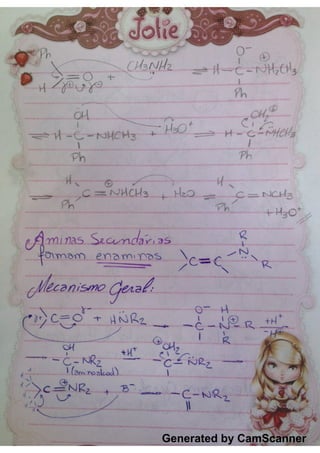 Jolie
Ph
H
C=O + CH3NH2 ⇌ H-C-NH2CH3
O-
⊕
Ph
OH
⇌ H-C-NHCH3 + H3O+ ⇌ H-C-NHCH3
Ph
OH2 ⊕
Ph
H
⇌ C=NHCH3 + H2O ⇌ C=NCH3
Ph
⊕
H
Ph
+ H3O+
Aminas Secundárias
formam enaminas
C=C
N
R
R
Mecanismo Geral:
C=O + HNR2 → -C-N-R
O- H
R
+H+
-H+
OH
→ -C-NR2 +H+ → -C-NR2
(aminoalcool)
⊕OH2
C=NR2 + B- → -C-NR2
⊕
Generated by CamScanner